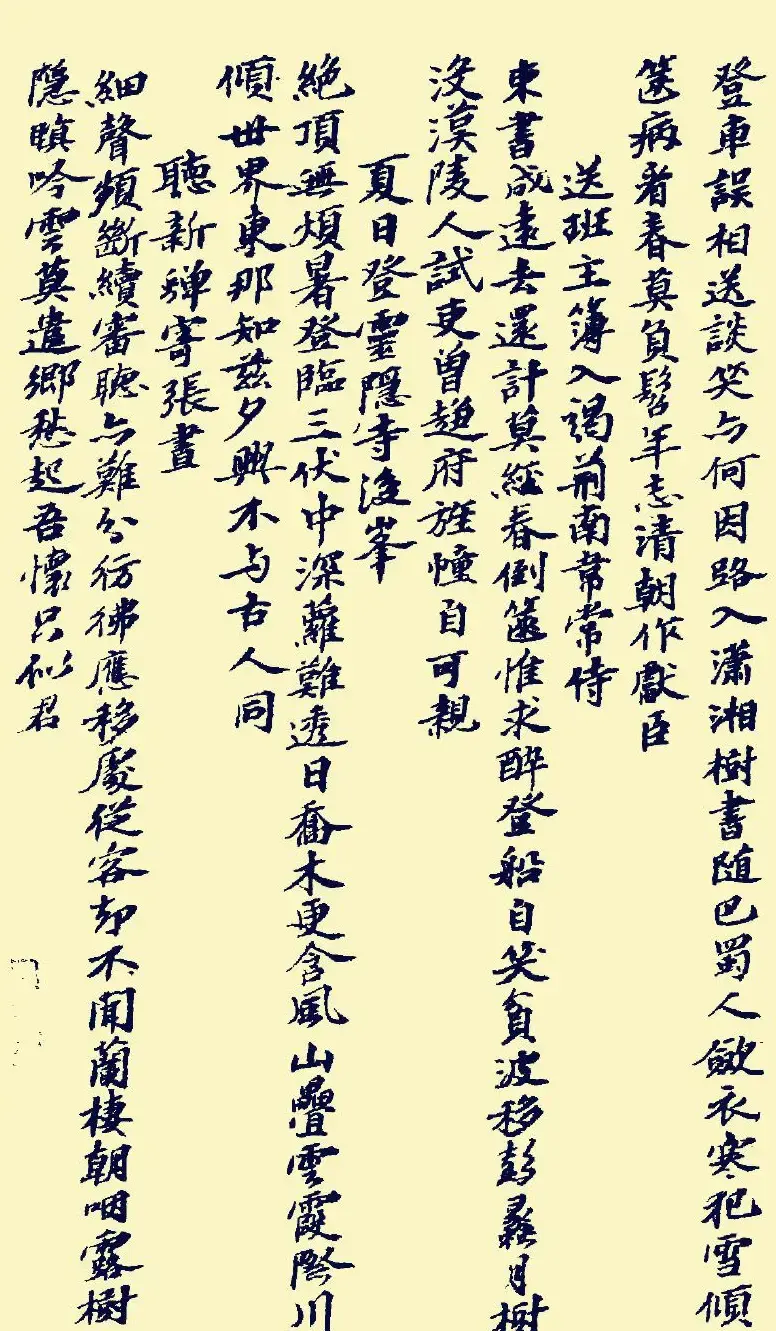 登車誤相送談笑亦何因路入瀟湘樹書隨巴蜀人斂衣寒犯雪傾
篋病看春莫負髫年志清朝作獻臣
送班主簿入謁荊南韋常侍
束書成遠去還計莫經春倒篋惟求醉登船自笑貧波移彭蠡月樹
沒漢陵人試吏曾趨府旌幢自可親
夏日登靈隱寺後峯
絶頂無煩暑登臨三伏中深蘿難透日喬木更含風山疊雲霞際川
傾世界東那知茲夕興不与古人同
聽新蟬寄張晝
細聲頻斷續審聽亦難分彷彿應移處從容却不聞蘭棲朝咽露樹
隱暝吟雲莫遣鄉愁起吾懷只似君